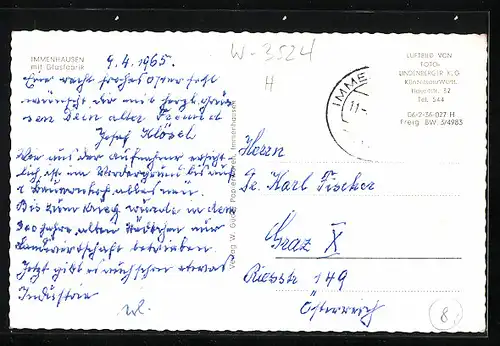 IMMENHAUSEN
mit Glasfabrik
9.4.1965.
Ein recht frohes Osterfest
wünscht dir mit herzl. Grüs-
sen Dein alter Freund
Josef Klösel
Wie aus der Aufnahme ersicht-
lich ist im Vordergrund bis auf
1 Bauwerk alles neu.
Bis zum Krieg wurde in dem
900 Jahre alten Städtchen nur
Landwirtschaft betrieben.
Jetzt gibt es auch schon etwas
Industrie
W-3524
H
IMME
11.-
Verlag W. Papierwaren, Immenhausen
LUFTBILD VON
FOTO-
LINDENBERGER K.G
Künzelsau/Württ.
Tel. 544
06/2-36-027 H
Freig. BW. 5/4983
Herrn
Dr. Karl Fischer
Graz X
Riesstr 149
Österreich
8